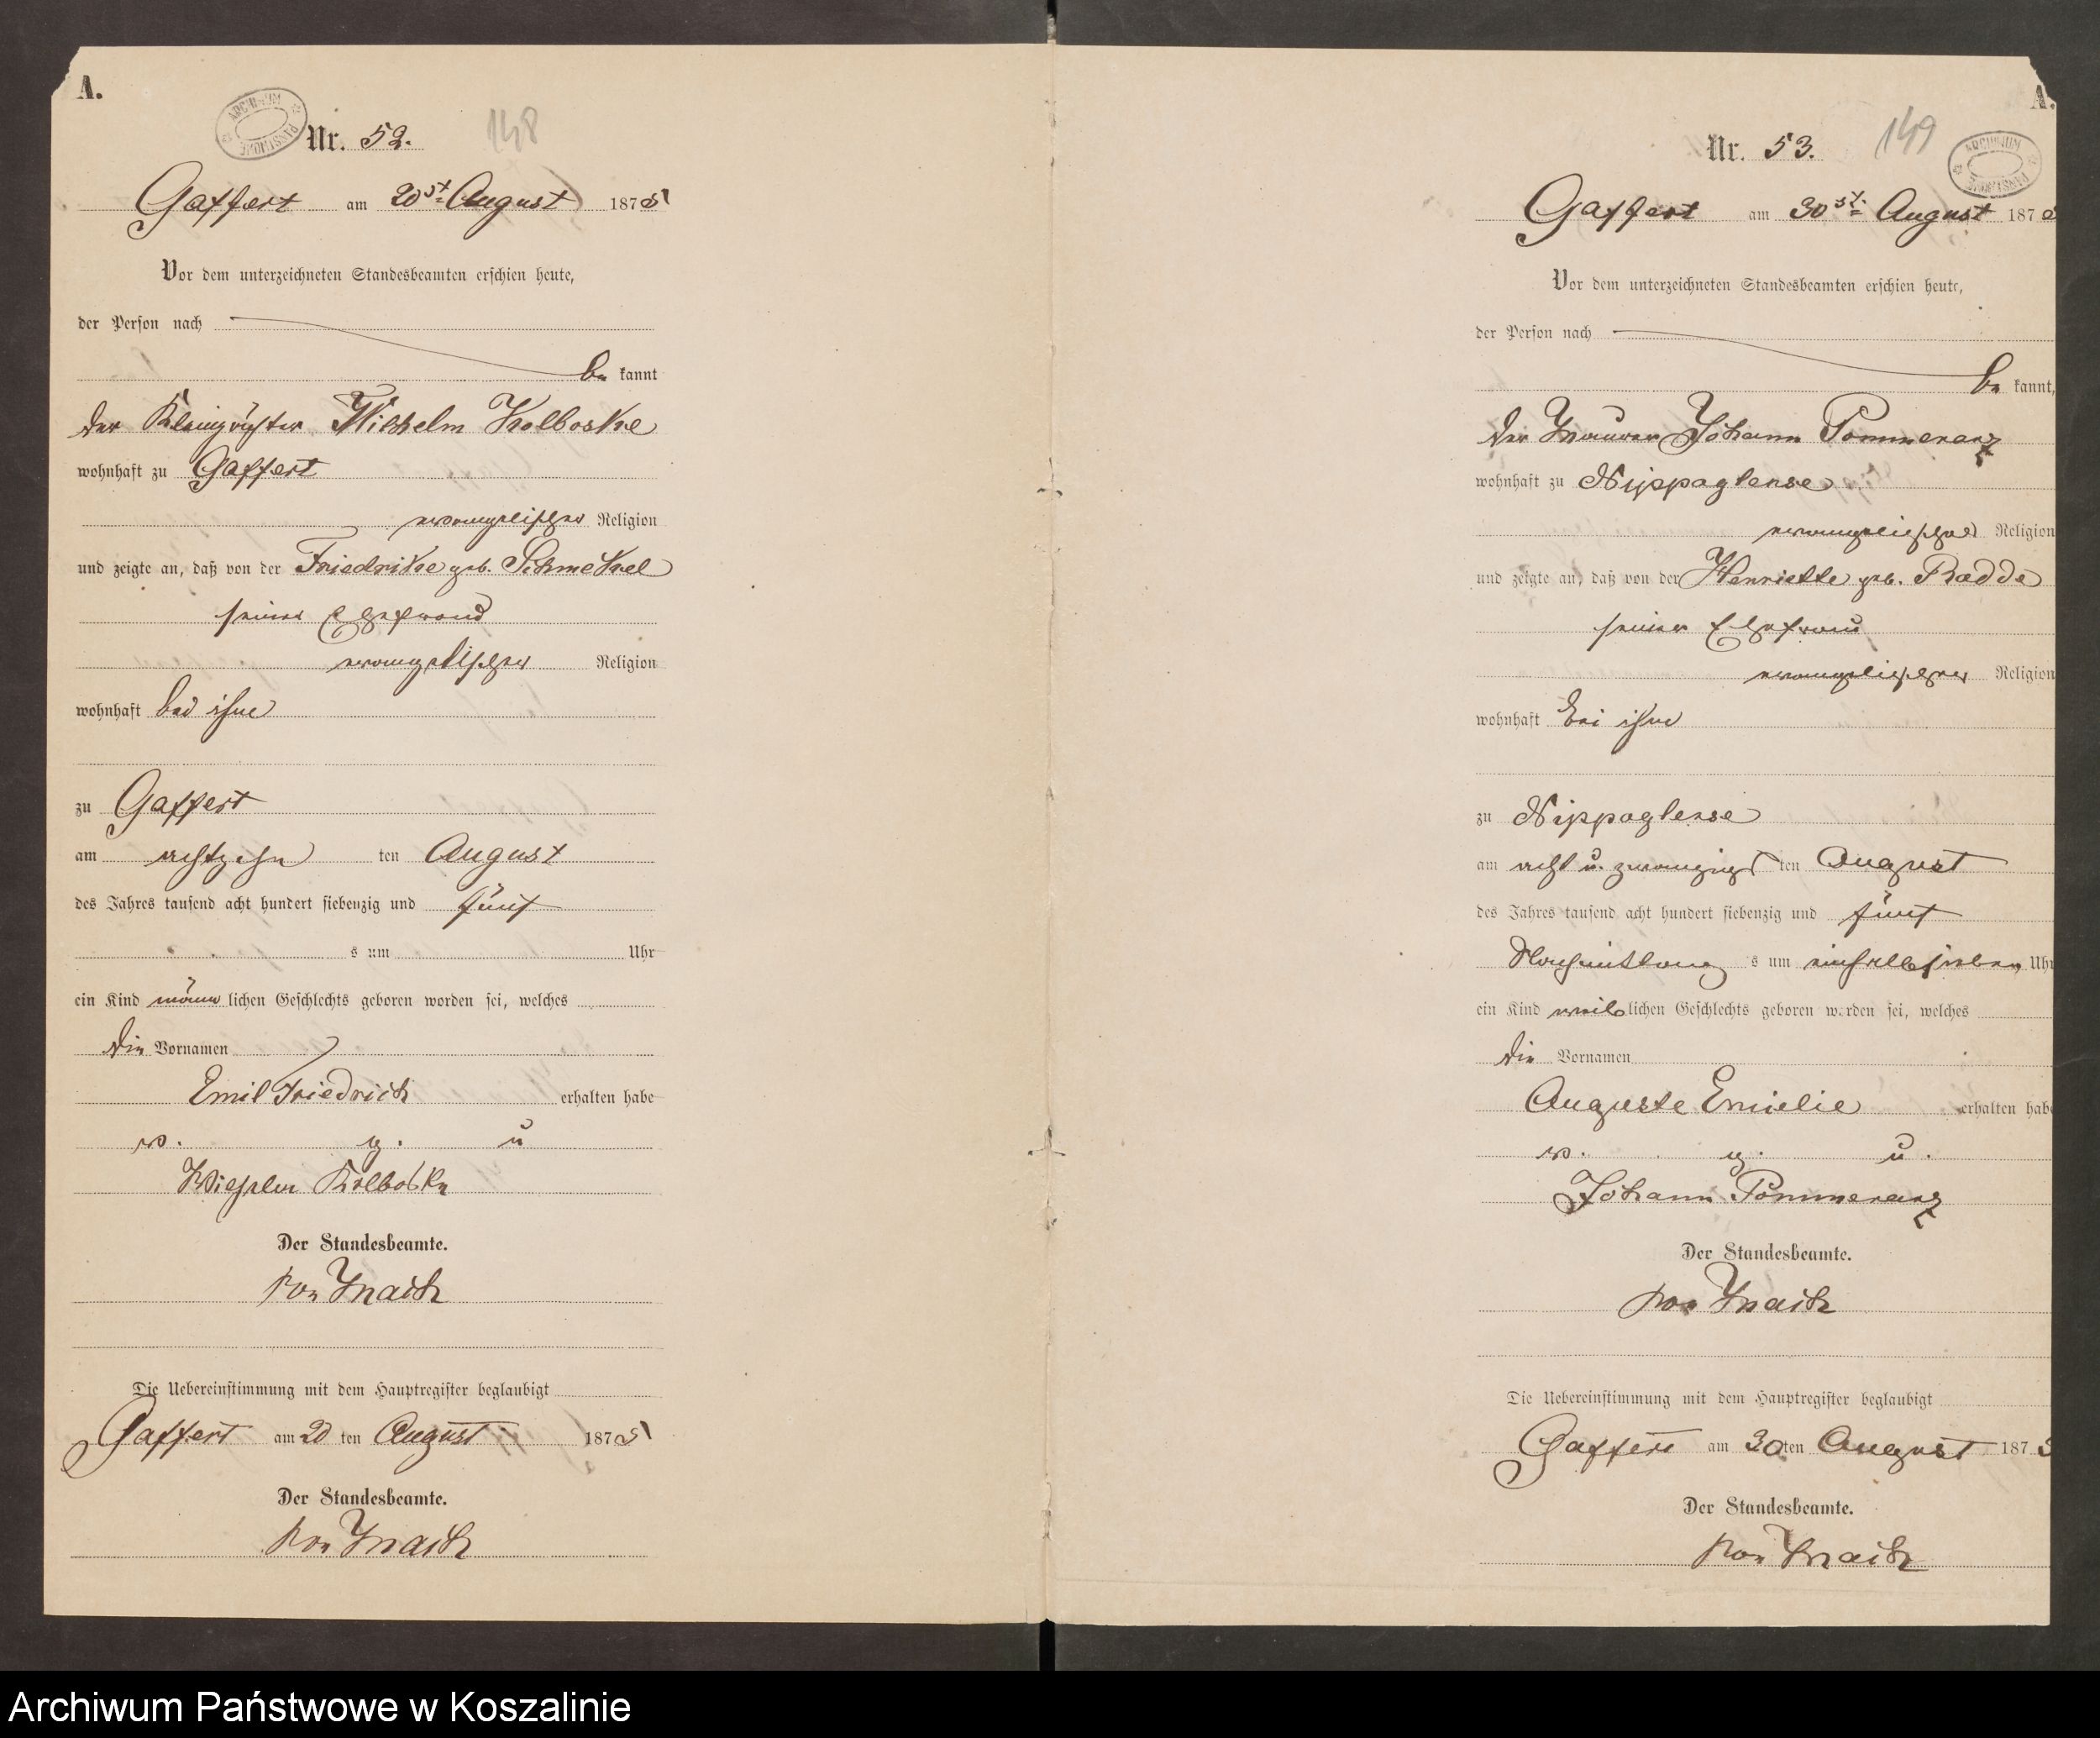 A.
ARCHIWUM PAŃSTWOWE
Nr. 52.
148
Gaffert am 20st August 1875
Vor dem unterzeichneten Standesbeamten erschien heute,
der Person nach
be kannt
der Kleinpächter Wilhelm Kolboske
wohnhaft zu Gaffert
evangelischer Religion
und zeigte an, daß von der Friedrike geb. Schmekel
seiner Ehefrau
evangelischer Religion
wohnhaft bei ihm
zu Gaffert
am achtzehn ten August
des Jahres tausend acht hundert siebenzig und fünf
s um Uhr
ein Kind männ lichen Geschlechts geboren worden sei, welches
die Vornamen
Emil Friedrich erhalten habe
v. g. u
Wilhelm Kolboske
Der Standesbeamte.
von
Die Uebereinstimmung mit dem Hauptregister beglaubigt
Gaffert am 20 ten August 1875
Der Standesbeamte.
von
A.
ARCHIWUM PAŃSTWOWE
Nr. 53.
149
Gaffert am 30st August 187
Vor dem unterzeichneten Standesbeamten erschien heute,
der Person nach
be kannt,
der Maurer Johann Pommeranz
wohnhaft zu Nippoglense
evangelischer Religion
und zeigte an, daß von der Henriette geb. Radde
seiner Ehefrau
evangelischer Religion
wohnhaft bei ihm
zu Nippoglense
am acht u. zwanzigst ten August
des Jahres tausend acht hundert siebenzig und fünf
Nachmittag s um einhalbsieben Uhr
ein Kind weib lichen Geschlechts geboren worden sei, welches
die Vornamen
Auguste Emielie erhalten habe
v. g. u.
Johann Pommeranz
Der Standesbeamte.
von
Die Uebereinstimmung mit dem Hauptregister beglaubigt
Gaffert am 30ten August 187
Der Standesbeamte.
von
Archiwum Państwowe w Koszalinie